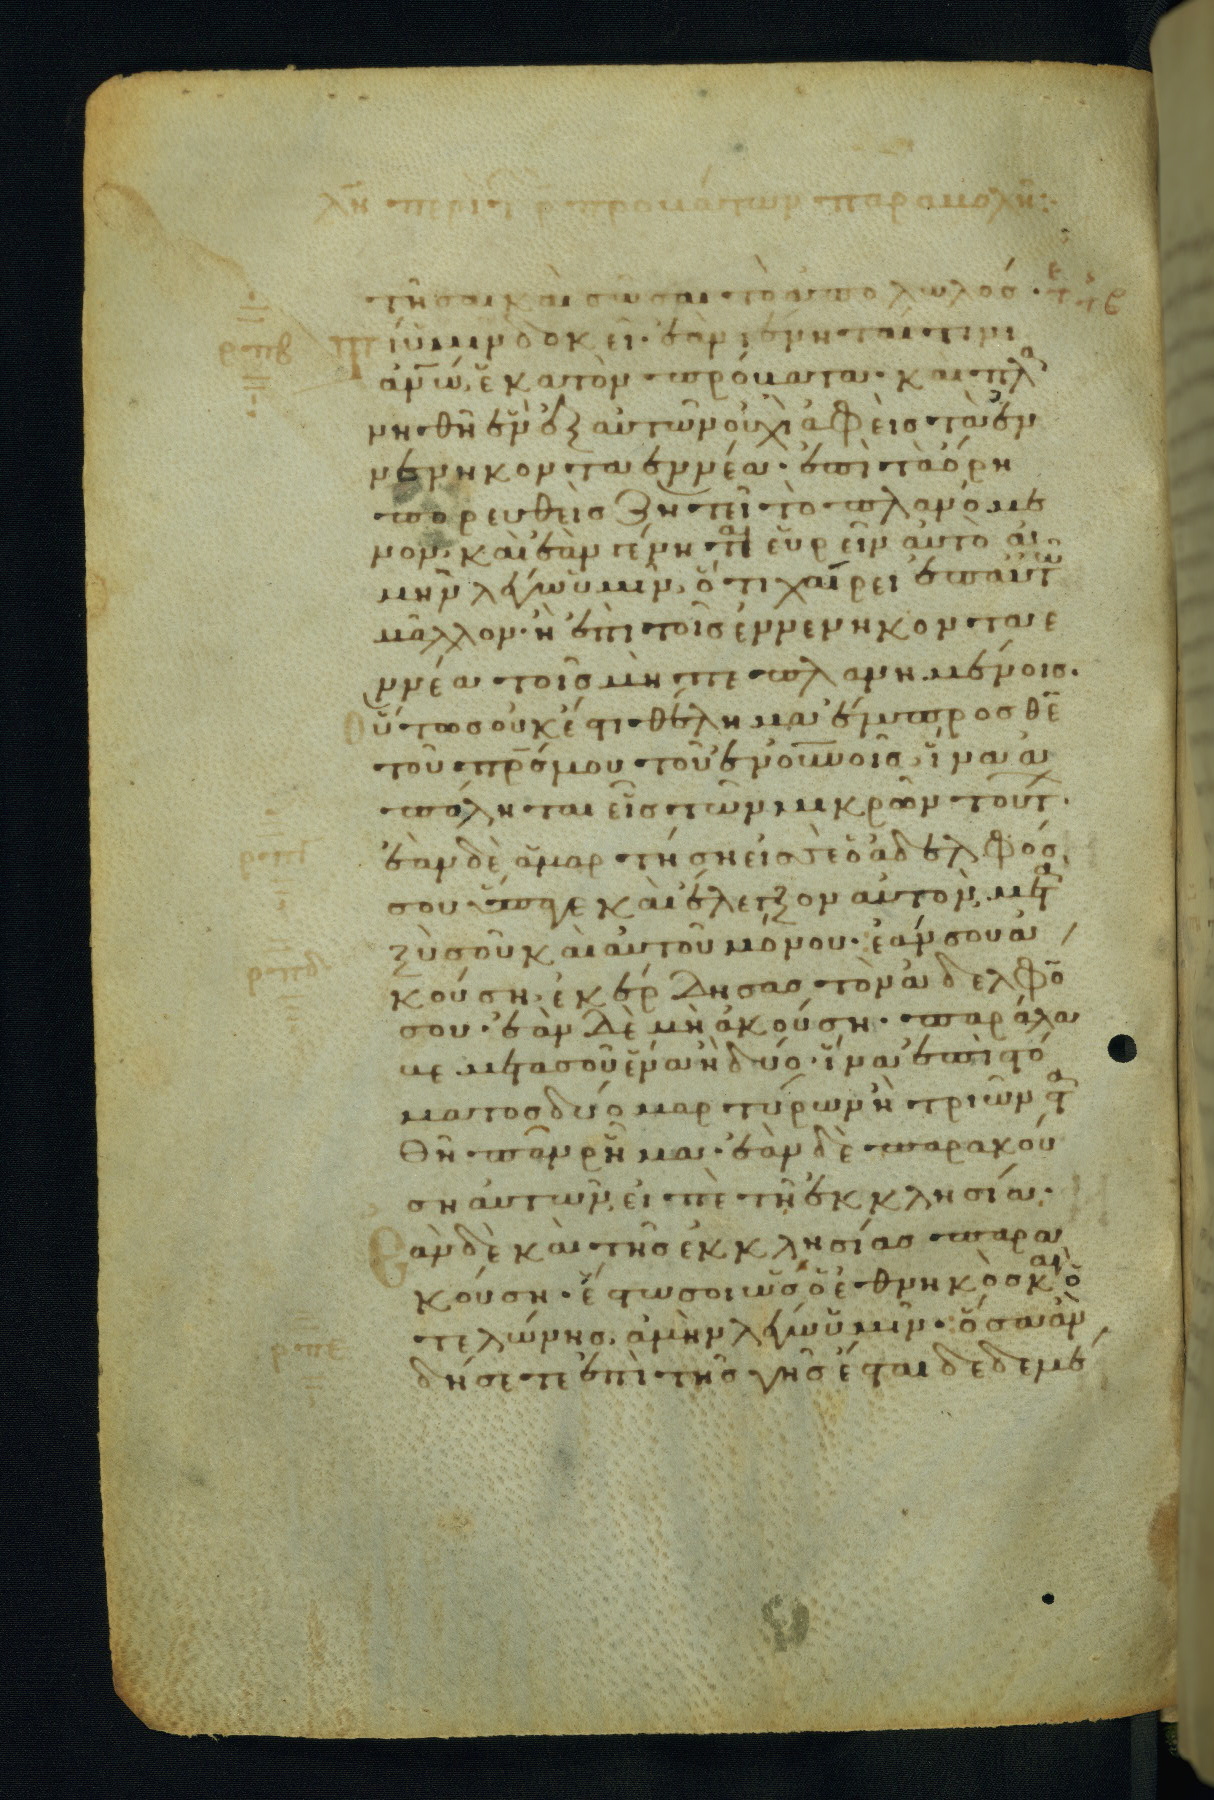 λη περὶ τῶν ρ προβάτων παραβολή:
τῆσαι καὶ σῶσαι τὸ ἀπολωλός.
Τί ὑμῖν δοκεῖ. ἐὰν γένηται τινι
ρπβ
ἀνω ἑκατὸν πρόβατα. καὶ πλα
νηθῆ ἓν ἐξ αὐτῶν οὐχὶ ἀφεὶς τὰ ἐν
νενηκονταεννέα. ἐπὶ τὰ ὄρη
πορευθεὶς ζητεῖ τὸ πλανόμε
νον. καὶ ἐὰν γένηται εὑρεῖν αὐτὸ ἀ
μὴν λέγω ὑμῖν, ὅτι χαίρει ἐπ αὐτῶ
μᾶλλον. ἢ ἐπὶ τοῖς ἐννενηκονταε
ννέα τοῖς μὴ πεπλανημένοις.
Οὕτως οὐκ ἔστι θέλημα ἔμπροσθε
τοῦ πρσ μου τοῦ ἐν οὐνοις, ἵνα ἀ
πόληται εἷς τῶν μικρῶν τούτ.
ρπγ
ἐὰν δὲ ἁμαρτήση εἰς σὲ ὁ ἀδελφός
σου ὕπαγε καὶ ἔλεγξον αὐτὸν, μετα
ξὺ σοῦ καὶ αὐτοῦ μόνου. ἐάν σου ἀ
ρπδ
κούση, ἐκέρδησας τὸν ἀδελφό
σου. ἐὰν δὲ μὴ ἀκούση. παράλα
βε μετα σοῦ ἕνα ἢ δύο. ἵνα ἐπὶ στό
ματος δύο μαρτύρων ἢ τριῶν στα
θῆ πᾶν ῥῆμα. ἐὰν δὲ παρακού
ση αὐτῶν, εἰπὲ τῆ ἐκκλησία.
Ἐὰν δὲ καὶ τῆς ἐκκλησίας παρα
κούση. ἔστω σοι ὡς ὁ ἐθνηκὸς καὶ ὁ
τελώνης. ἀμὴν λέγω ὑμῖν. ὅσα ἀν
ρπε
δήσετε ἐπὶ τῆς γῆς ἔσται δεδεμέ